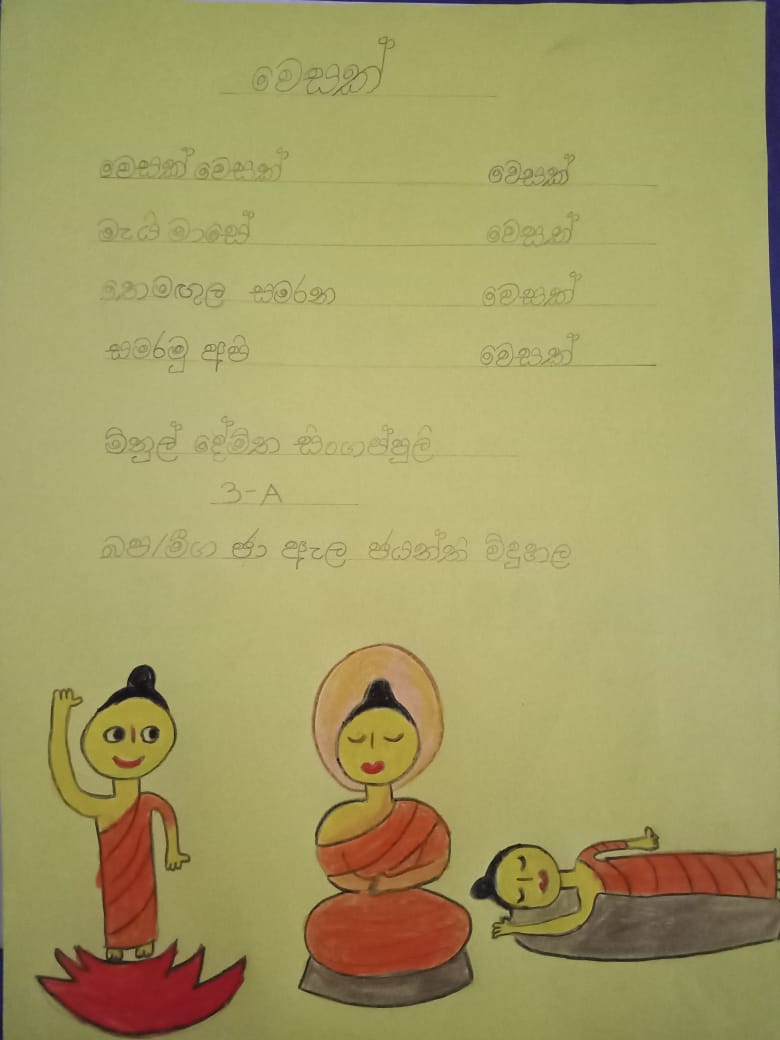 වෙසක්
වෙසක් වෙසක් වෙසක්
මැයි මාසේ වෙසක්
තෙමඟුල සමරන වෙසක්
සමරමු අපි වෙසක්
මිනුල් දේමිත සිංගප්පුලි
3-A
බප/මීග ජා ඇල ජයන්ති විදුහල